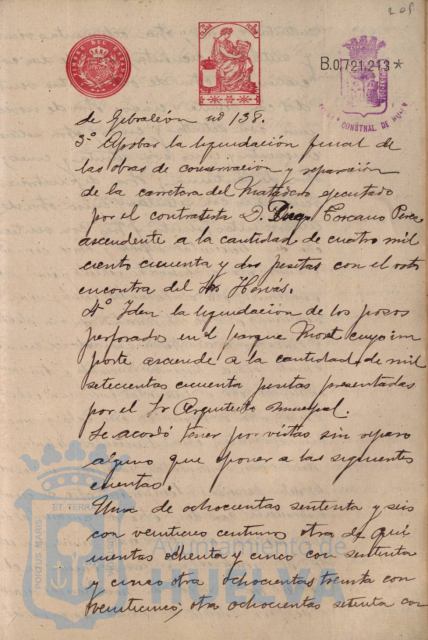 208
B.0.721.213*
CONSTNAL DE HUELVA
de Gebraleón nº 138.
3º Aprobar la liquidación final de
las obras de conservación y reparación
de la carretera del Matadero ejecutado
por el contratista D. Diego Corcano Perea
ascendente a la cantidad de cuatro mil
ciento cincuenta y dos pesetas con el voto
en contra del Sr Hervás.
4º Iden la liquidación de los pozos
perforados en el parque Moret cuyo im
porte asciende a la cantidad de mil
setecientas cincuenta pesetas presentadas
por el Sr Arquitecto municipal.
Se acordó tener por vistas sin reparo
alguno que oponer a las siguientes
cuentas.
Una de ochocientas setenta y seis
con veinticinco centimos otra de qui
nientas ochenta y cinco con setenta
y cinco otra ochocientas treinta con
veinticinco, otra ochocientas setenta con
PORTUS MARIS
ET TERRAE
HUELVA